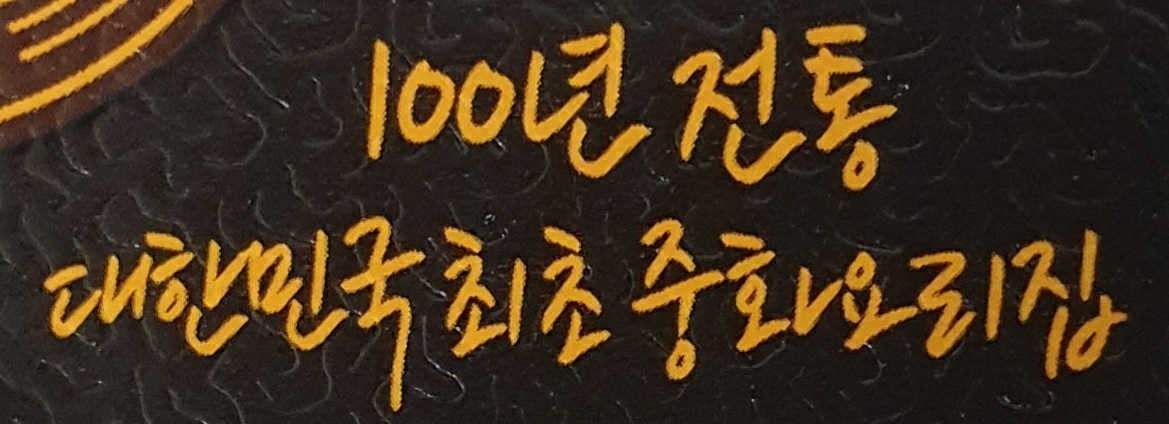 100년 전통
대한민국 최초 중화요리집